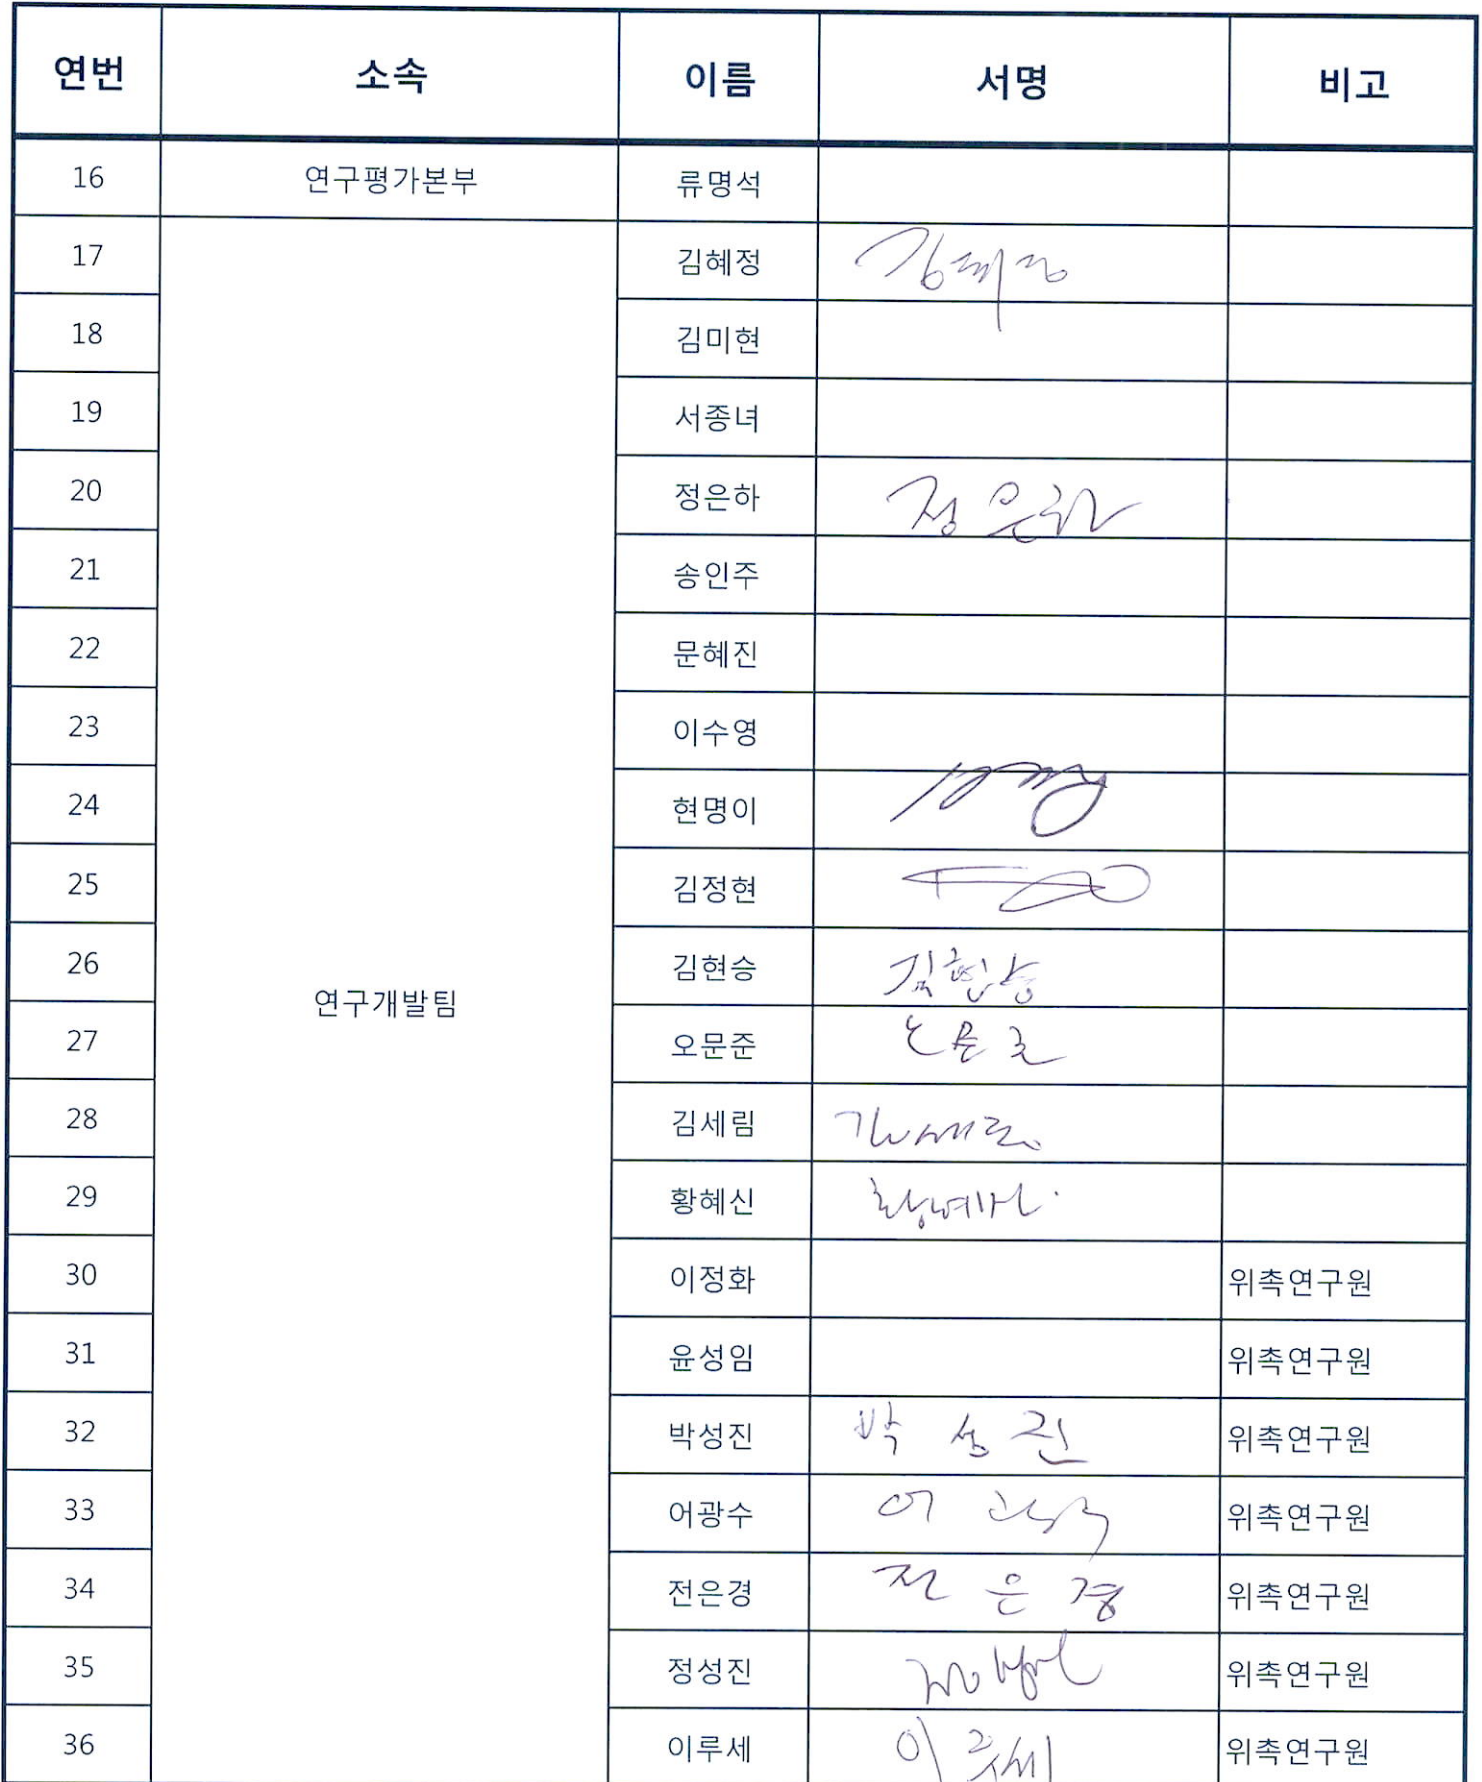 연번 소속 이름 서명 비고
16 연구평가본부 류명석
17 김혜정 김혜정
18 김미현
19 서종녀
20 정은하 정은하
21 송인주
22 문혜진
23 이수영
24 현명이
25 김정현
26 김현승 김현승
27 연구개발팀 오문준 오문준
28 김세림 김세림
29 황혜신 황혜신
30 이정화 위촉연구원
31 윤성임 위촉연구원
32 박성진 박성진 위촉연구원
33 어광수 어광수 위촉연구원
34 전은경 전은경 위촉연구원
35 정성진 위촉연구원
36 이루세 이루세 위촉연구원